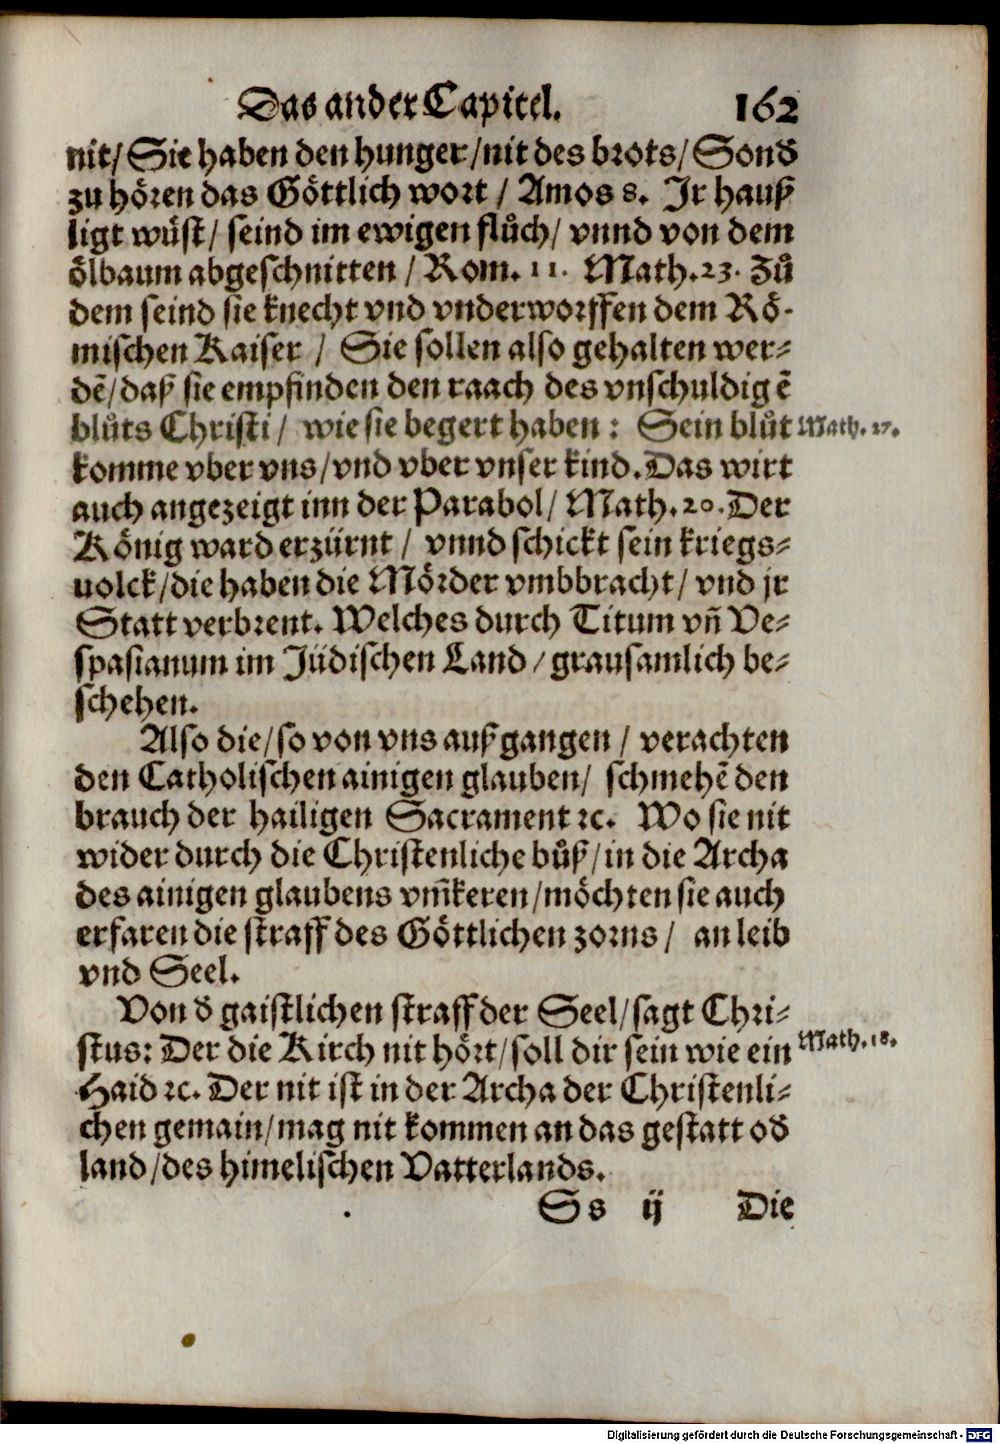 Das ander Capitel. 162
nit/ Sie haben den hunger/nit des brots/ Sond
zu hören das Göttlich wort / Amos 8. Jr hauß
ligt wüst/ seind im ewigen flůch/ vnnd von dem
ölbaum abgeschnitten / Rom. 11. Math. 23. Zů
dem seind sie knecht vnd vnderworffen dem Rö-
mischen Kaiser / Sie sollen also gehalten wer-
dē/daß sie empfinden den raach des vnschuldigē
blůts Christi/ wie sie begert haben: Sein blůt Math. 27.
komme vber vns/vnd vber vnser kind. Das wirt
auch angezeigt inn der Parabol/ Math. 20. Der
König ward erzürnt / vnnd schickt sein kriegs-
uolck/die haben die Mörder vmbbracht/ vnd jr
Statt verbrent. Welches durch Titum vñ Ve-
spasianum im Jüdischen Land / grausamlich be-
schehen.
Also die/so von vns außgangen / verachten
den Catholischen ainigen glauben/ schmehē den
brauch der hailigen Sacrament ꝛc. Wo sie nit
wider durch die Christenliche bůß/in die Archa
des ainigen glaubens vm̄keren/möchten sie auch
erfaren die straff des Göttlichen zorns/ an leib
vnd Seel.
Von d gaistlichen straff der Seel/sagt Chri-
stus: Der die Kirch nit hört/soll dir sein wie ein Math. 18.
Haid ꝛc. Der nit ist in der Archa der Christenli-
chen gemain/mag nit kommen an das gestatt od
land/des himelischen Vatterlands.
Ss ij Die
Digitalisierung gefördert durch die Deutsche Forschungsgemeinschaft - DFG